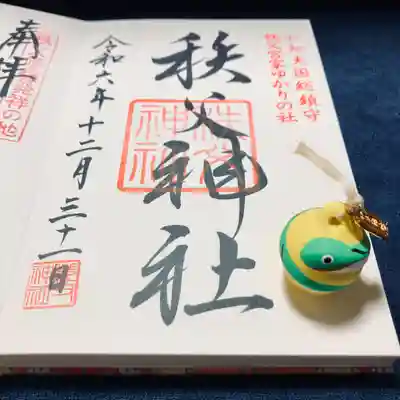 知知夫国総鎮守
秩父宮家ゆかりの社
秩父神社
秩父
神社
令和六年十二月三十一日
奉拝
発祥の地